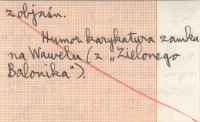 z objaśn.
Humor. karykatura zamku
na Wawelu (z „Zielonego
Balonika").